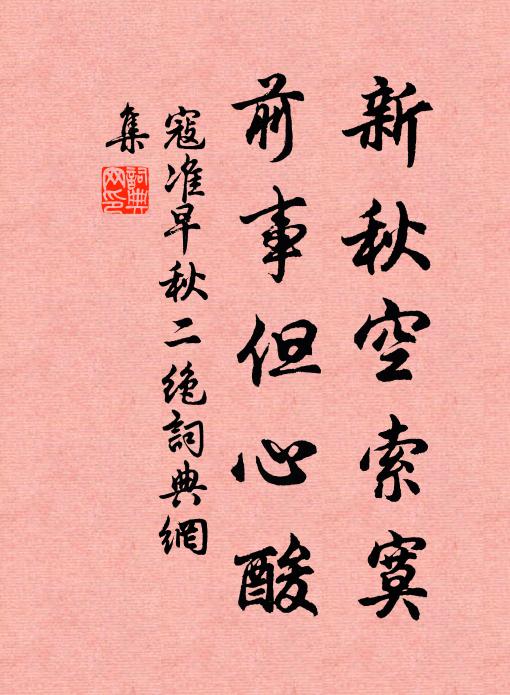 新秋空索寞
前事但心酸
寇准早秋二绝詞典網
集
詞典
网印